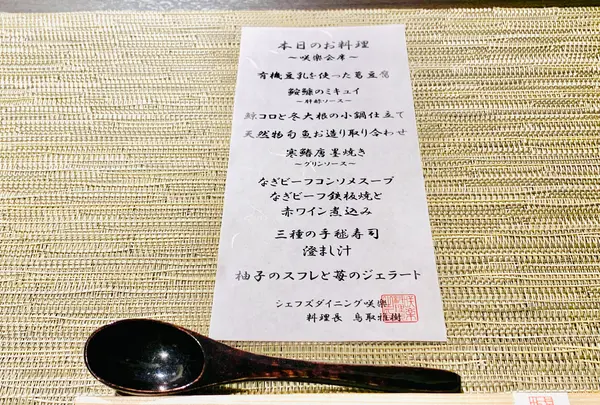 本日のお料理
～咲樂会席～
有機豆乳を使った葛豆腐
鮟鱇のミキュイ
～肝酢ソース～
鯨コロと冬大根の小鍋仕立て
天然物旬魚お造り取り合わせ
寒鰆唐墨焼き
～グリンソース～
なぎビーフコンソメスープ
なぎビーフ鉄板焼と
赤ワイン煮込み
三種の手毬寿司
澄まし汁
柚子のスフレと苺のジェラート
シェフズダイニング咲樂
料理長 鳥取雅樹